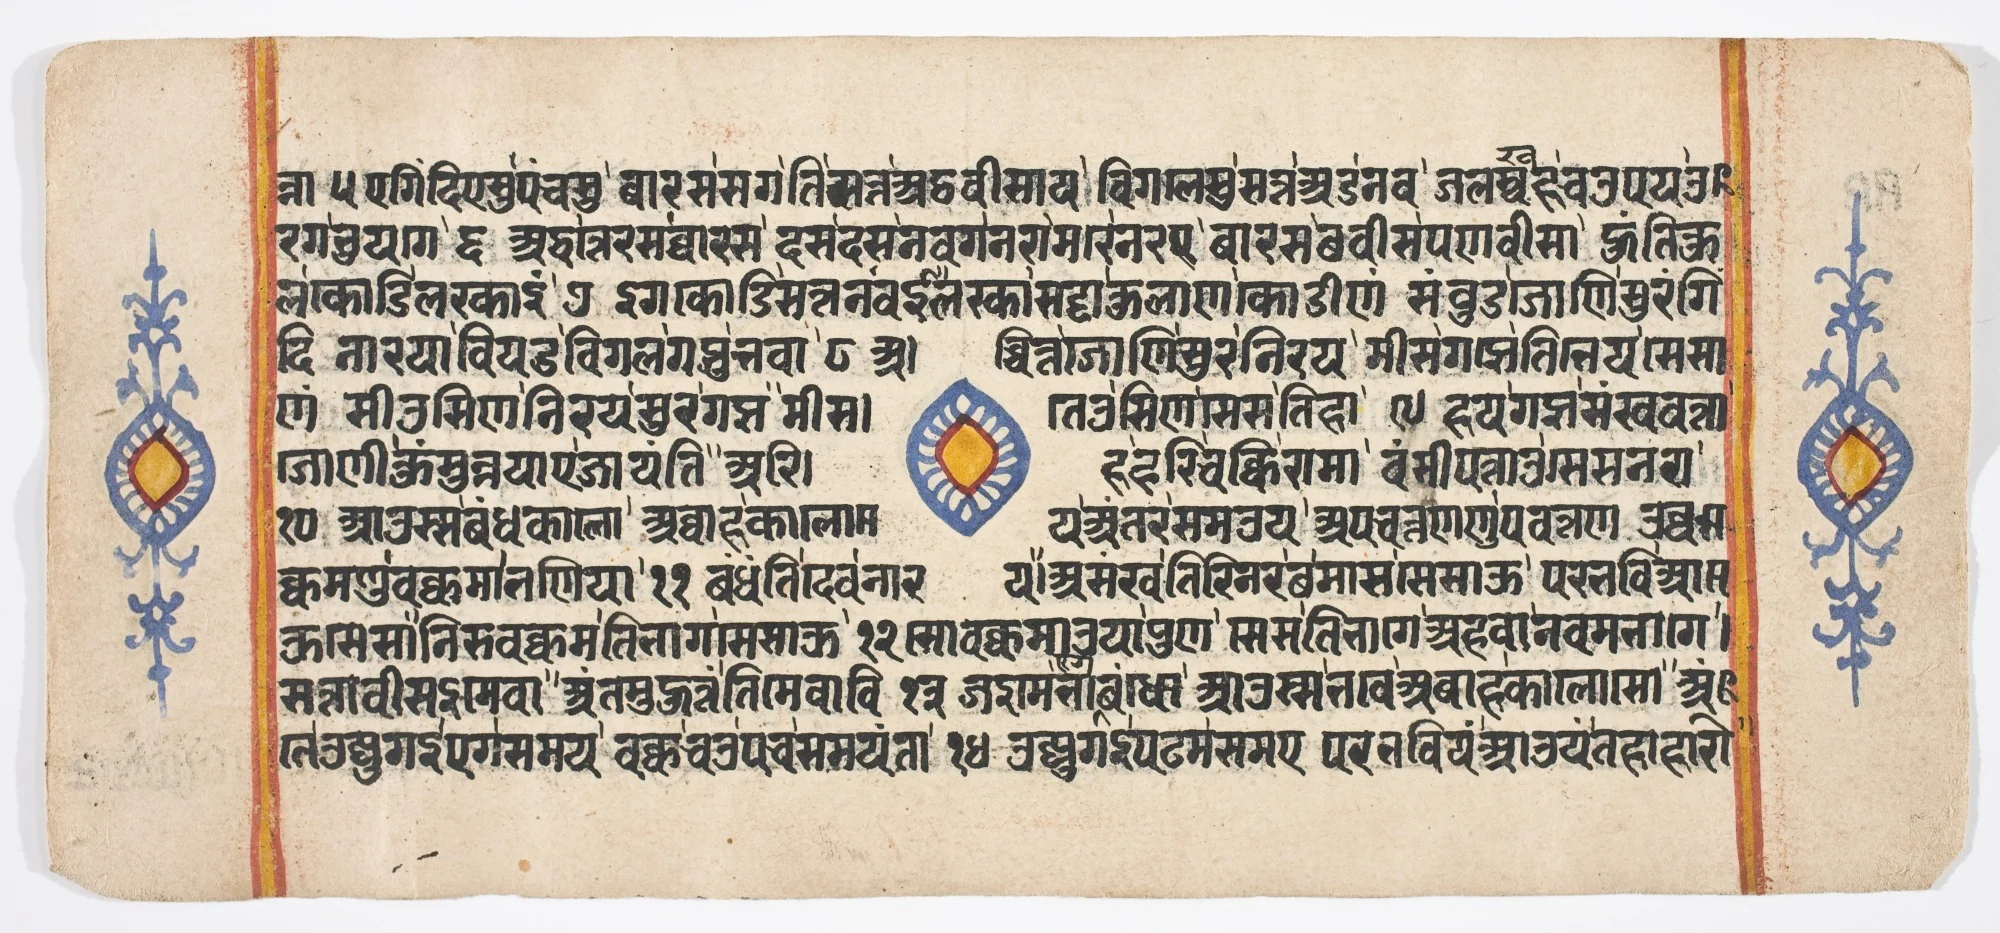 न्ना ५ एगिंदिएसु पंचसु बारसससग तिसत्तअठवीसाय विगलेसुसत्तअडनव जलखहचउपयउ
रगभुयगे ६ अद्धत्तेरसबारस दसदसनवगंनरामरेनरए बारसछवीसपणवीसा हुंतिकु
लकोडिलरकाइं ७ इगकोडिसत्तनवईलरकासड्ढाकुलाणकोडीणं संवुडजोणिसुरेगिं
दि नारयावियडविगलगप्भुभया ८ अचित्तजोणिसुरनिरय मीसगप्भेतिभेयसेसा
णं सीउसिणनिरयसुरगप्भमीस तेउसिणसेसतिहा ९ हयगप्भसंखवत्ता
जोणीकुंमुन्नयाएजायंति अरिहहरिचक्किरामा वंसीपत्ताएसेसनरा
१० आउस्सबंधकालो अबाहकालोय अंतरसमउय अपवत्तणणपवत्तण उवक्कम
णुवक्कमाभणिया ११ बंधंतिदेवनारय असंखतिरिनरछमाससेसाऊ परभविआ
ऊसेसानिरुवक्कमतिभागसेसाऊ १२ सोवक्कमाउयापुण सेसतिभागेअहवानवमभागे
सत्तावीसइमेवा अंतमुहुत्तंतिमेवावि १३ जइमेभागेबंधो आउस्सभवेअबाहकालोसो अं
तेउज्जुगईएगसमय वक्कचउपंचसमयंता १४ उज्जुगईपढमसमए परभवियंआउयंतहाहारो